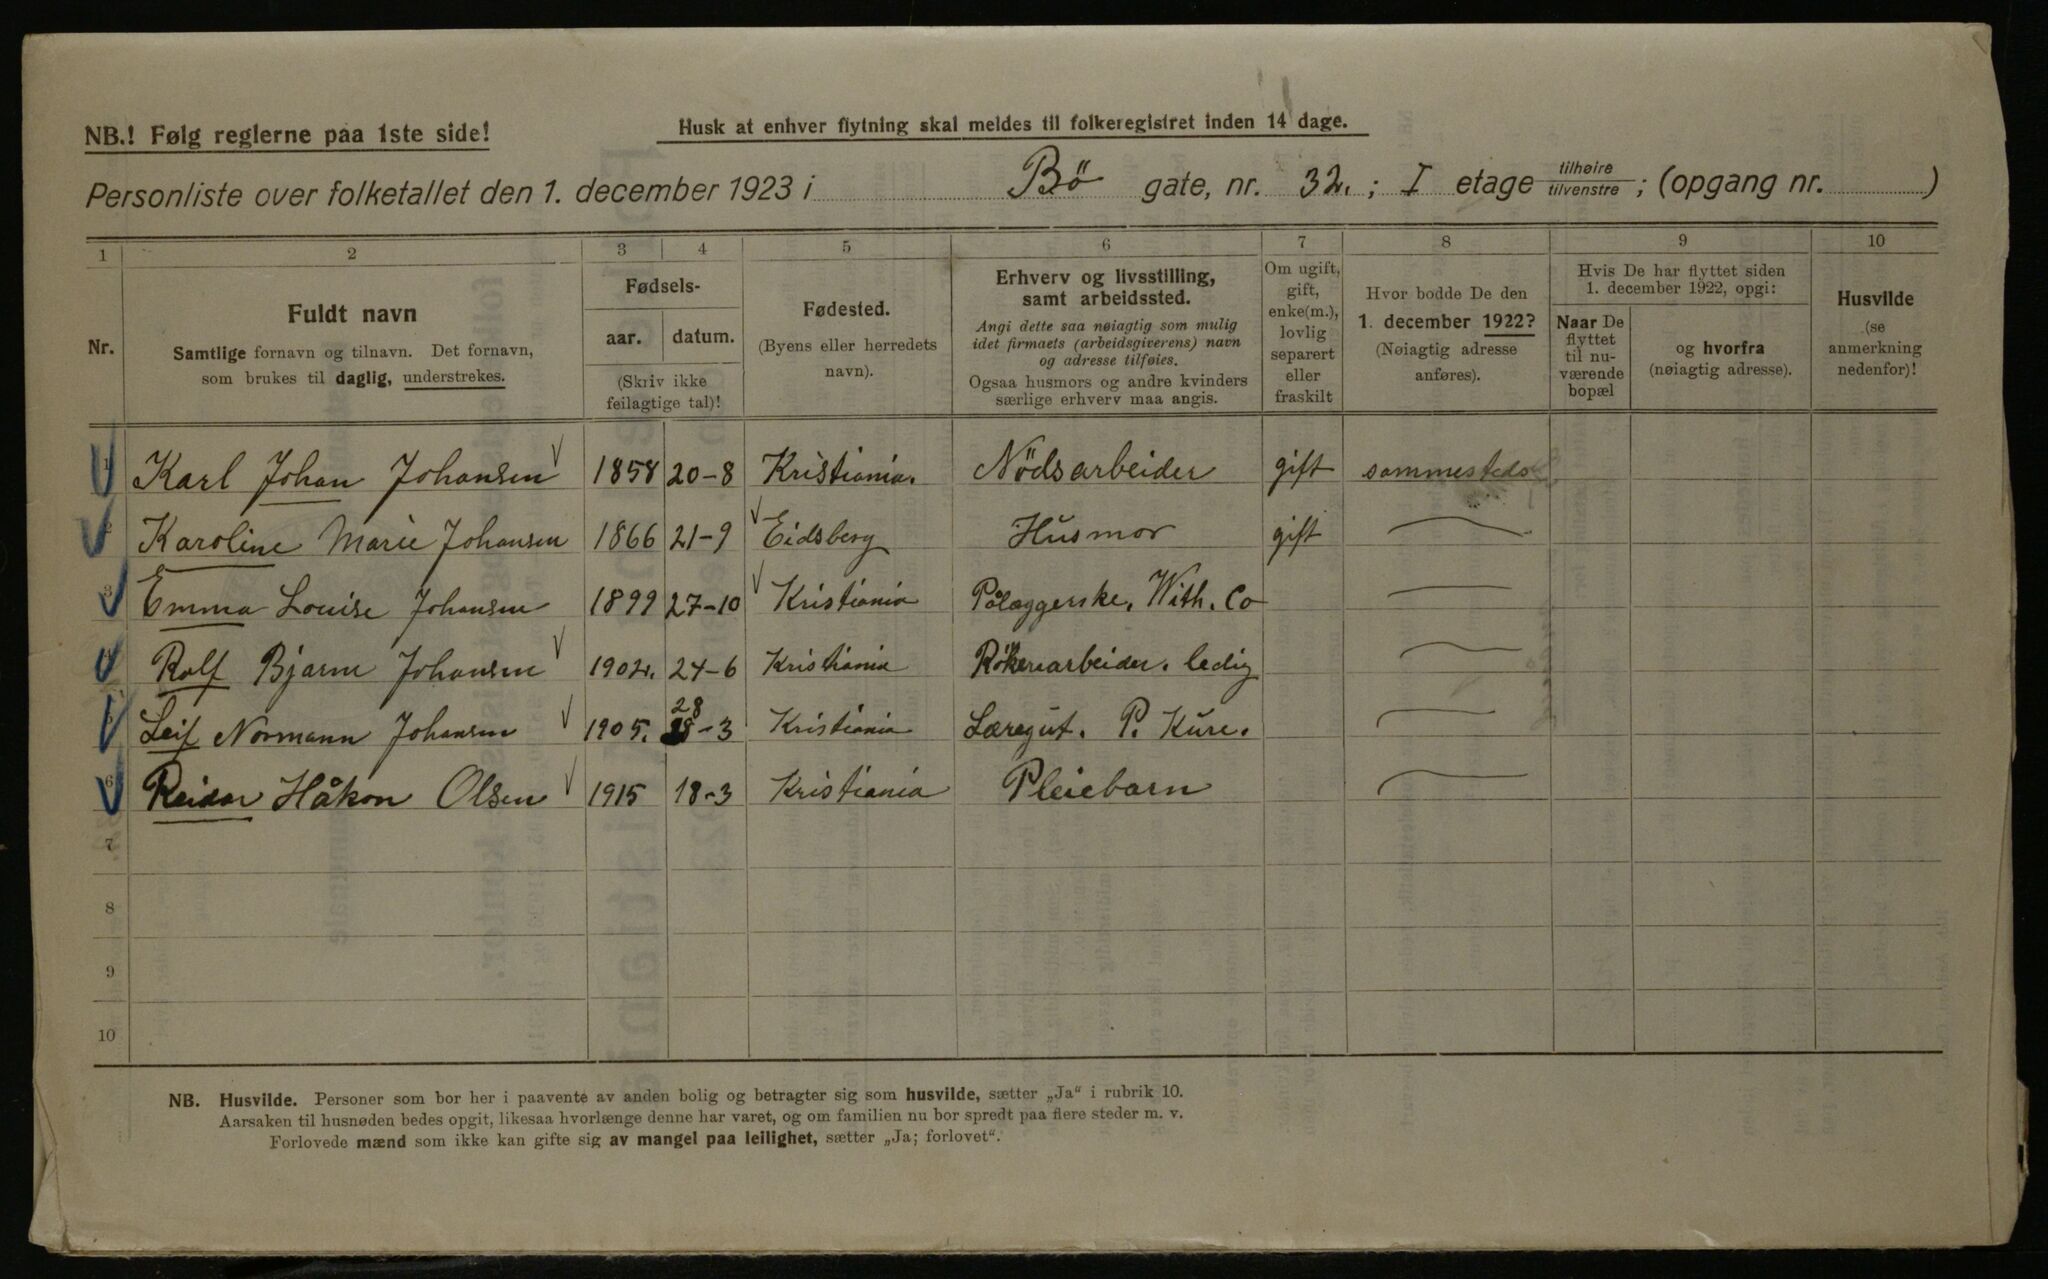 NB.! Følg reglerne paa 1ste side!
Husk at enhver flytning skal meldes til folkeregistret inden 14 dage.
Personliste over folketallet den 1. december 1923 i Bö gate, nr. 32. ; I etage tilhøire/tilvenstre ; (opgang nr. )
1 2 3 4 5 6 7 8 9 10
Nr.
Fuldt navn
Samtlige fornavn og tilnavn. Det fornavn,
som brukes til daglig, understrekes.
Fødsels-
aar. datum.
(Skriv ikke
feilagtige tal)!
Fødested.
(Byens eller herredets
navn).
Erhverv og livsstilling,
samt arbeidssted.
Angi dette saa nøiagtig som mulig
idet firmaets (arbeidsgiverens) navn
og adresse tilføies.
Ogsaa husmors og andre kvinders
særlige erhverv maa angis.
Om ugift,
gift,
enke(m.),
lovlig
separert
eller
fraskilt
Hvor bodde De den
1. december 1922?
(Nøiagtig adresse
anføres).
Hvis De har flyttet siden
1. december 1922, opgi:
Naar De
flyttet
til nu-
værende
bopæl
og hvorfra
(nøiagtig adresse).
Husvilde
(se
anmerkning
nedenfor)!
1 Karl Johan Johansen 1858 20-8 Kristiania. Nödsarbeider gift sammesteds
2 Karoline Marie Johansen 1866 21-9 Eidsberg Husmor gift
3 Emma Louise Johansen 1899 27-10 Kristiania Pålæggerske. With. Co
4 Rolf Bjarne Johansen 1902. 24-6 Kristiania arbeider. ledig
28
5 Leif Normann Johansen 1905. -3 Kristiania Læregut. P. Kure.
6 Reidar Håkon Olsen 1915 18-3 Kristiania Pleiebarn
7
8
9
10
NB. Husvilde. Personer som bor her i paavente av anden bolig og betragter sig som husvilde, sætter „Ja“ i rubrik 10.
Aarsaken til husnøden bedes opgit, likesaa hvorlænge denne har varet, og om familien nu bor spredt paa flere steder m. v.
Forlovede mænd som ikke kan gifte sig av mangel paa leilighet, sætter „Ja; forlovet“.